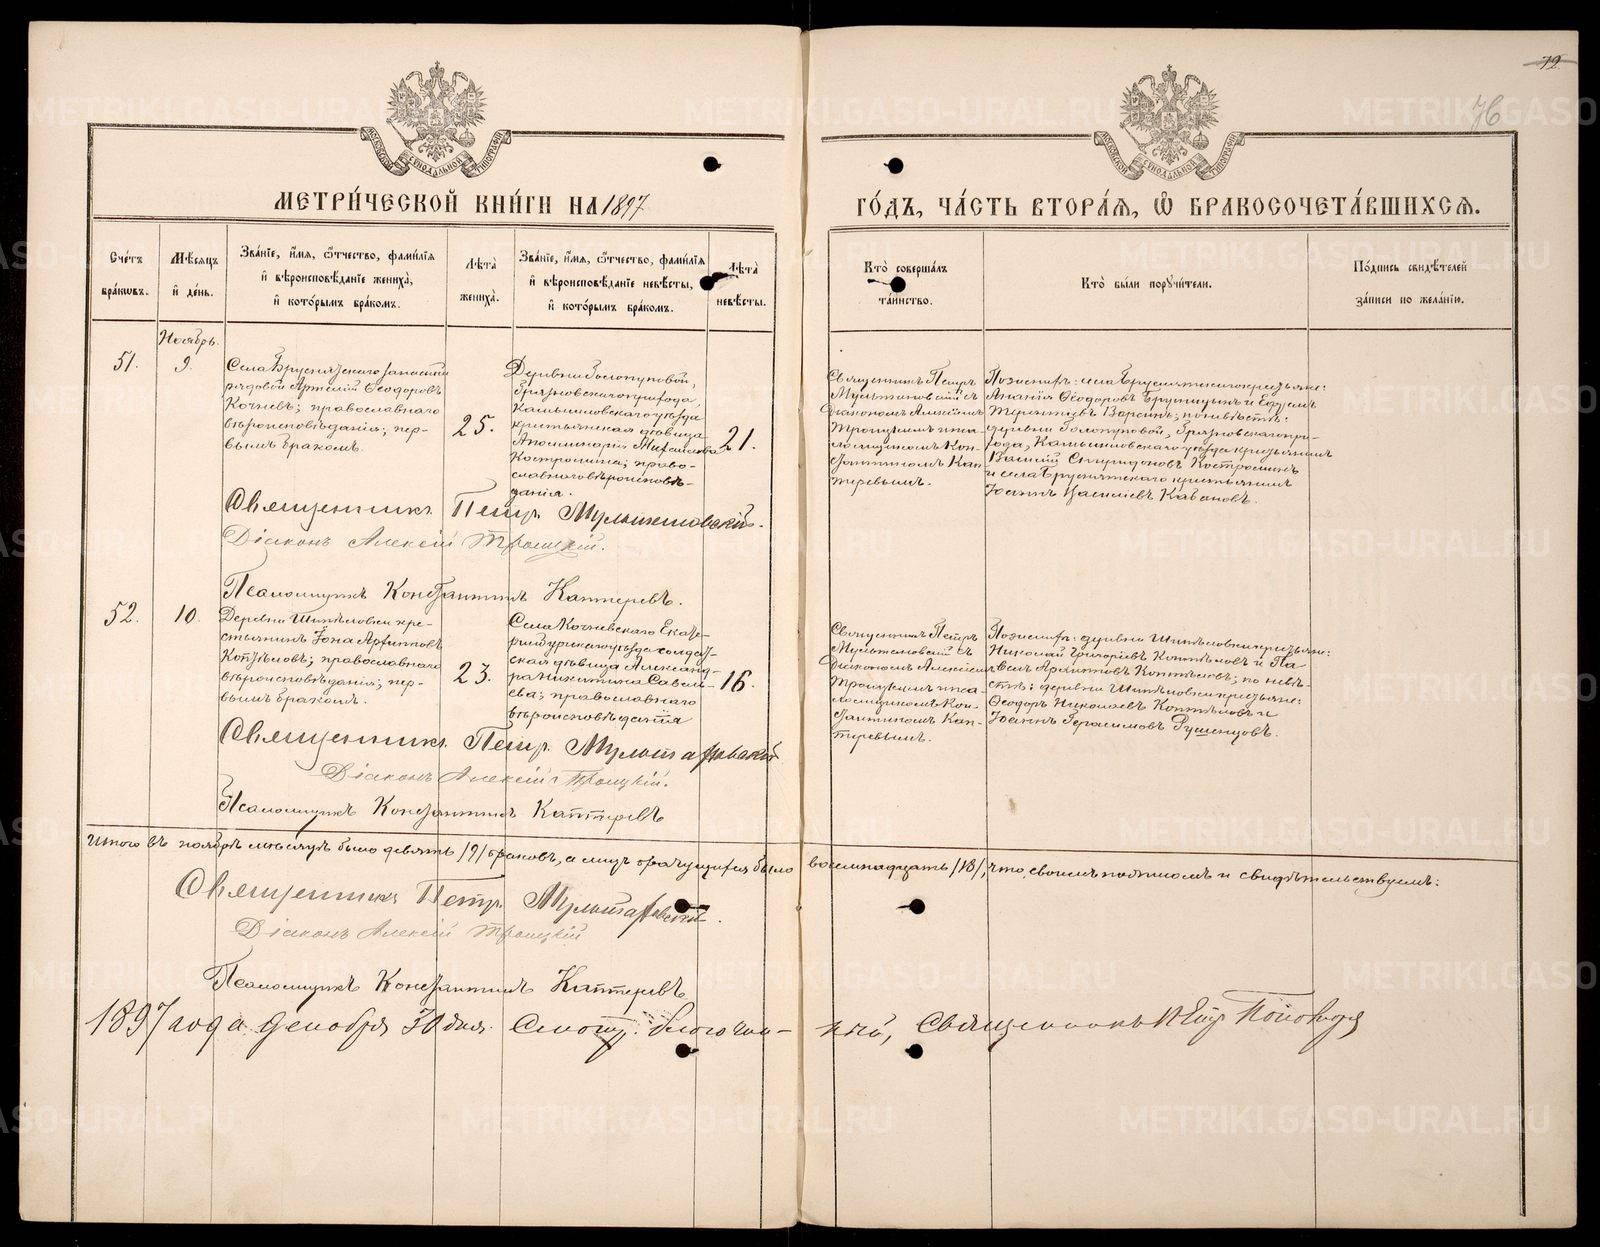 72
76
МОСКОВСКОЙ СѴНОДАЛЬНОЙ ТИПОГРАФІИ
МОСКОВСКОЙ СѴНОДАЛЬНОЙ ТИПОГРАФІИ
МЕТРИ́ЧЕСКОЙ КНИ́ГИ НА 1897
ГО́ДЪ, ЧА́СТЬ ВТОРА́Я, Ѽ БРАКОСОЧЕТА́ВШИХСЯ.
Сче́тъ
бра́ковъ.
Мѣ́сяцъ
и҆ де́нь.
Зва́нїе, и҆́мя, ѻ҆́тчество, фами́лїя
и҆ вѣроисповѣ́данїе жениха̀,
и҆ кото́рымъ бра́комъ.
Лѣ́та
жениха̀.
Зва́нїе, и҆́мя, ѻ҆́тчество, фами́лїя
и҆ вѣроисповѣ́данїе невѣ́сты,
и҆ кото́рымъ бра́комъ.
Лѣ́та
невѣ́сты.
Кто̀ соверша́лъ
та́инство.
Кто̀ бы́ли поручи́тели.
По́дпись свидѣ́телей
за́писи по жела́нїю.
Ноябрь.
51.
9.
Села Бруснятскаго запасный
рядовой Артемій Ѳеодоровъ
Кочневъ; православнаго
вѣроисповѣданія; пер-
вымъ бракомъ.
25.
Деревни Золотуповой,
Грязновскаго прихода,
Камышловскаго уѣзда
крестьянская дѣвица
Аполлинарія
Костромина; право-
славнаго вѣроисповѣ-
данія.
21.
Священникъ Петръ
Мультановскій съ
Діакономъ Алексіемъ
Троицкимъ и пса-
ломщикомъ Кон-
стантиномъ Кап-
теревымъ.
По женихѣ: села Бруснятскаго крестьяне:
Ананія Ѳеодоровъ Брусницынъ и Ефремъ
Терентіевъ; по невѣстѣ:
деревни Золотуповой, Грязновскаго при-
хода, Камышловскаго уѣзда крестьянинъ
Василій Спиридоновъ Костроминъ
и села Бруснятскаго крестьянинъ
Іоаннъ Василіевъ Кабановъ.
Священникъ Петръ Мультановскій.
Діаконъ Алексій Троицкій.
Псаломщикъ Константинъ Каптеревъ.
52.
10.
Деревни Шипѣловки кре-
стьянинъ Іона Архиповъ
Коптѣловъ; православнаго
вѣроисповѣданія; пер-
вымъ бракомъ.
23.
Села Кочневскаго Екате-
ринбургскаго уѣзда солдат-
ская дѣвица Александ-
ра Никитина Савель-
ева; православнаго
вѣроисповѣданія
16.
Священникъ Петръ
Мультановскій съ
Діакономъ Алексіемъ
Троицкимъ и пса-
ломщикомъ Кон-
стантиномъ Кап-
теревымъ.
По женихѣ: деревни Шипѣловки крестьяне:
Николай Григоріевъ Коптѣловъ и Па-
велъ Архиповъ Коптѣловъ; по невѣ-
стѣ: деревни Шипѣловки крестьяне:
Ѳеодоръ Николаевъ Коптѣловъ и
Іоаннъ Герасимовъ.
Священникъ Петръ Мультановскій
Діаконъ Алексій Троицкій.
Псаломщикъ Константинъ Каптеревъ
Итого въ ноябрѣ мѣсяцѣ было девять /9/ браковъ, а лицъ брачущихся было восемнадцать /18/, что своимъ подписомъ и свидѣтельствуемъ:
Священникъ Петръ Мультановскій.
Діаконъ Алексій Троицкій
Псаломщикъ Константинъ Каптеревъ
1897 года декабря 30 дня. Смотр. благочин- ный, Священникъ Петр Поповъ
METRIKI.GASO-URAL.RU